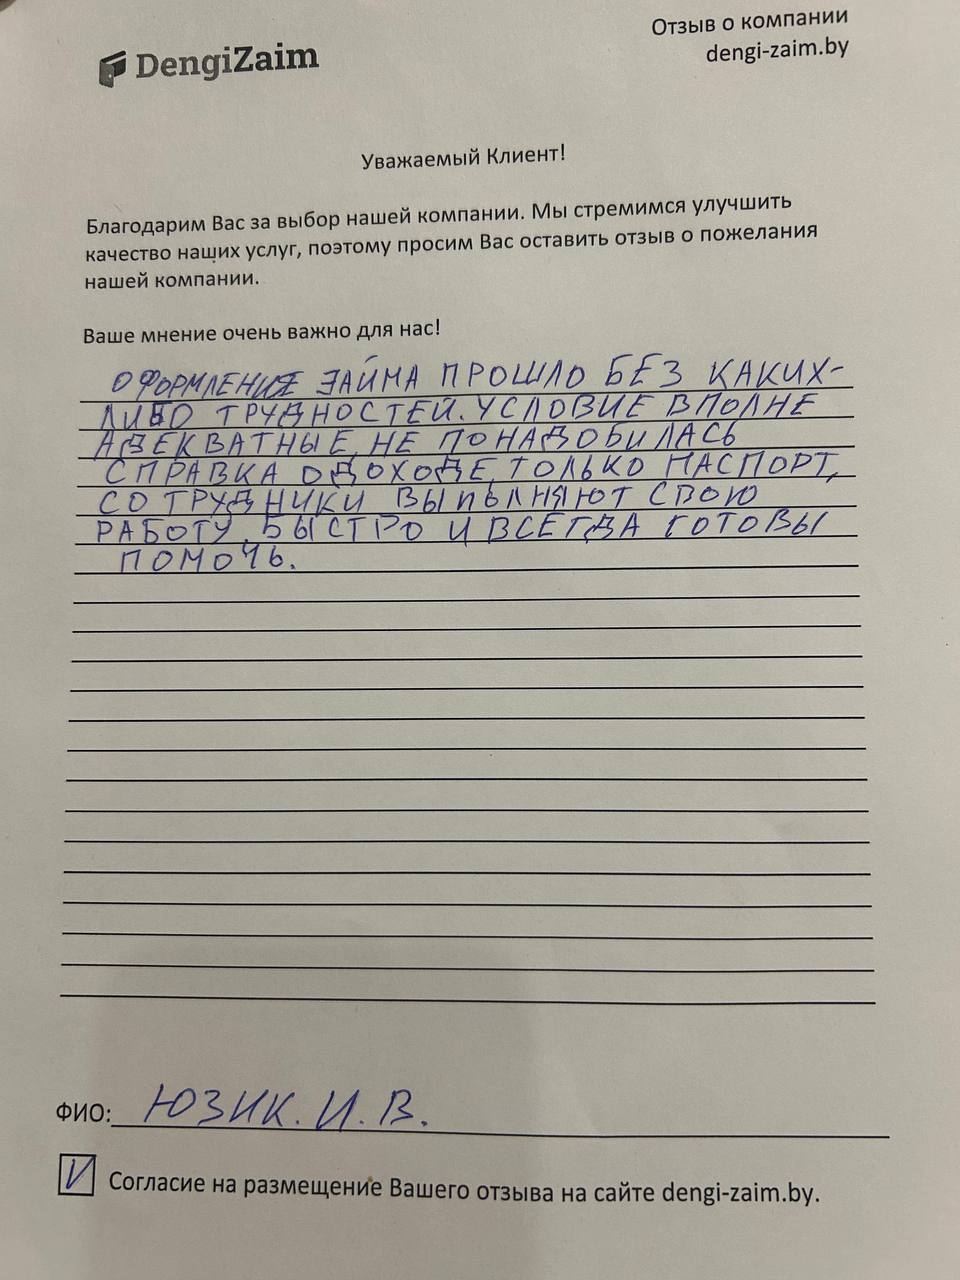 DengiZaim
Отзыв о компании
dengi-zaim.by
Уважаемый Клиент!
Благодарим Вас за выбор нашей компании. Мы стремимся улучшить
качество наших услуг, поэтому просим Вас оставить отзыв о пожелания
нашей компании.
Ваше мнение очень важно для нас!
ОФОРМЛЕНИЕ ЗАЙМА ПРОШЛО БЕЗ КАКИХ-
ЛИБО ТРУДНОСТЕЙ. УСЛОВИЕ ВПОЛНЕ
АДЕКВАТНЫЕ, НЕ ПОНАДОБИЛАСЬ
СПРАВКА О ДОХОДЕ, ТОЛЬКО ПАСПОРТ,
СОТРУДНИКИ ВЫПЫЛНЯЮТ СВОЮ
РАБОТУ, БЫСТРО И ВСЕГДА ГОТОВЫ
ПОМОЧЬ.
ФИО: ЮЗИК. И. В.
V Согласие на размещение Вашего отзыва на сайте dengi-zaim.by.